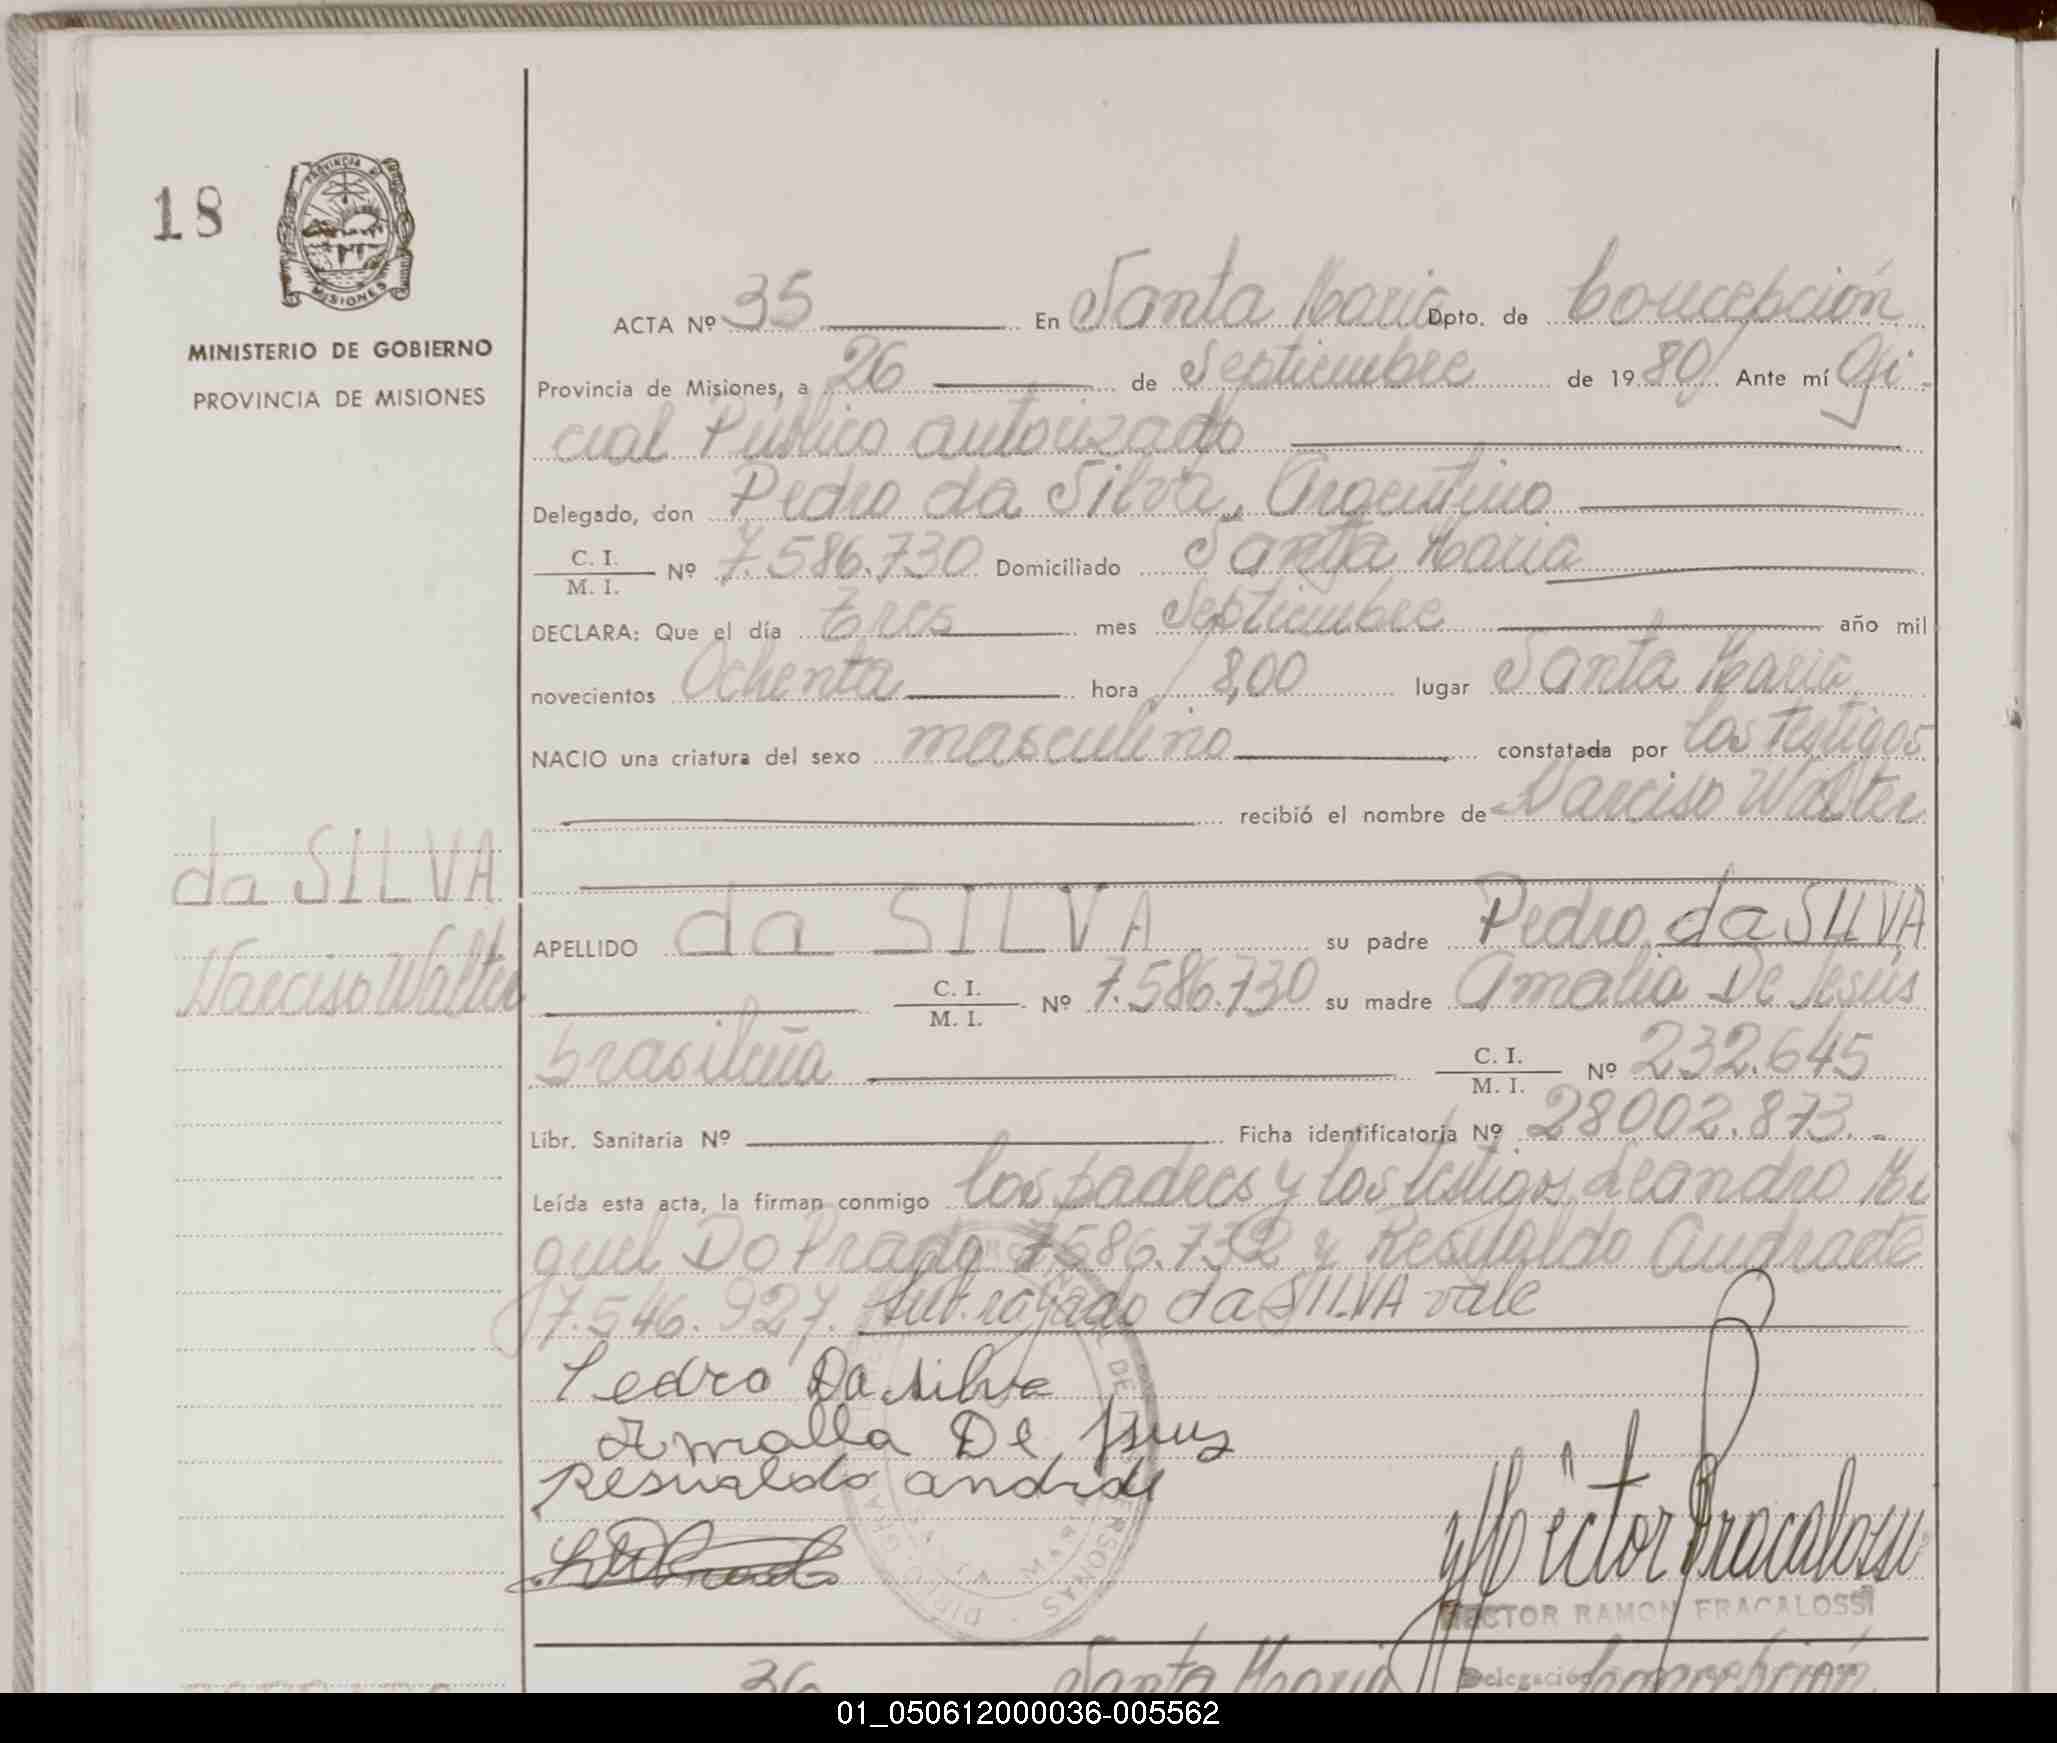 18
PROVINCIA DE
MISIONES
MINISTERIO DE GOBIERNO
PROVINCIA DE MISIONES
ACTA Nº 35 En Santa Maria Dpto. de Concepción
Provincia de Misiones, a 26 de Septiembre de 1980 Ante mí Ofi-
cial Público autorizado
Delegado, don Pedro da Silva, Argentino
C. I. / M. I. Nº 7.586.730 Domiciliado Santa Maria
DECLARA: Que el día tres mes Septiembre año mil
novecientos Ochenta hora 8,00 lugar Santa Maria
NACIO una criatura del sexo masculino constatada por los testigos
recibió el nombre de Narciso Walter
da SILVA
Narciso Walter
APELLIDO da SILVA su padre Pedro da SILVA
C. I. / M. I. Nº 7.586.730 su madre Amalia De Jesús
brasileña C. I. / M. I. Nº 232.645
Libr. Sanitaria Nº Ficha identificatoria Nº 28002.873.-
Leída esta acta, la firman conmigo los padres y los testigos Leandro Mi
guel Do Prado 7586.732 y Resualdo Andrade
7.546.927. Sub. rayado da SILVA vale
Pedro Da silva
Amalia De Jesus
Resualdo andrade
Héctor Fracalossi
HECTOR RAMON FRACALOSSI
36 Santa Maria Delegación Concepción
01_050612000036-005562